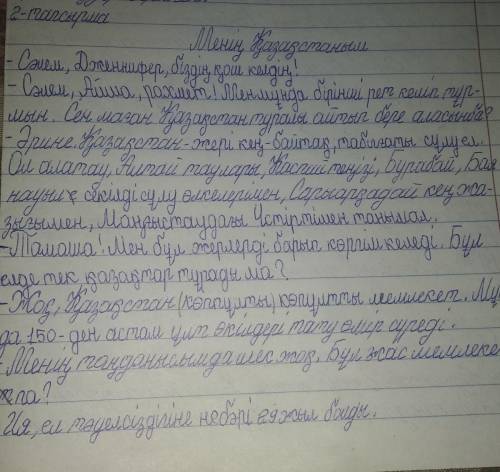 2-тапсырма
Менің Қазақстаным
- Сәлем, Дженнифер, біздің қош келдің!
- Сәлем, Айша, рахмет! Мен мұнда бірінші рет келіп тұр-
мын. Сен маған Қазақстан туралы айтып бере аласың ба?
- Әрине. Қазақстан - жері кең-байтақ, табиғаты сұлу ел.
Ол алатау, Алтай таулары, Каспий теңізі, Бурабай, Бая
науыл секілді сұлу өлкелерімен, Сарыарқадай кең жа-
зығымен, Маңғыстаудағы Үстіртімен танымал.
- Тамаша! Мен бұл жерлерді барып көргім келеді. Бұл
елде тек қазақтар тұрады ма?
- Жоқ, Қазақстан (көпұлты) көпұлтты мемлекет. Мұ
да 150-ден астам ұлт өкілдері тату өмір сүреді.
- Менің таңданысымда шек жоқ. Бұл жас мемлеке
па?
Ия, ел тәуелсіздігіне небәрі 29 жыл болды.